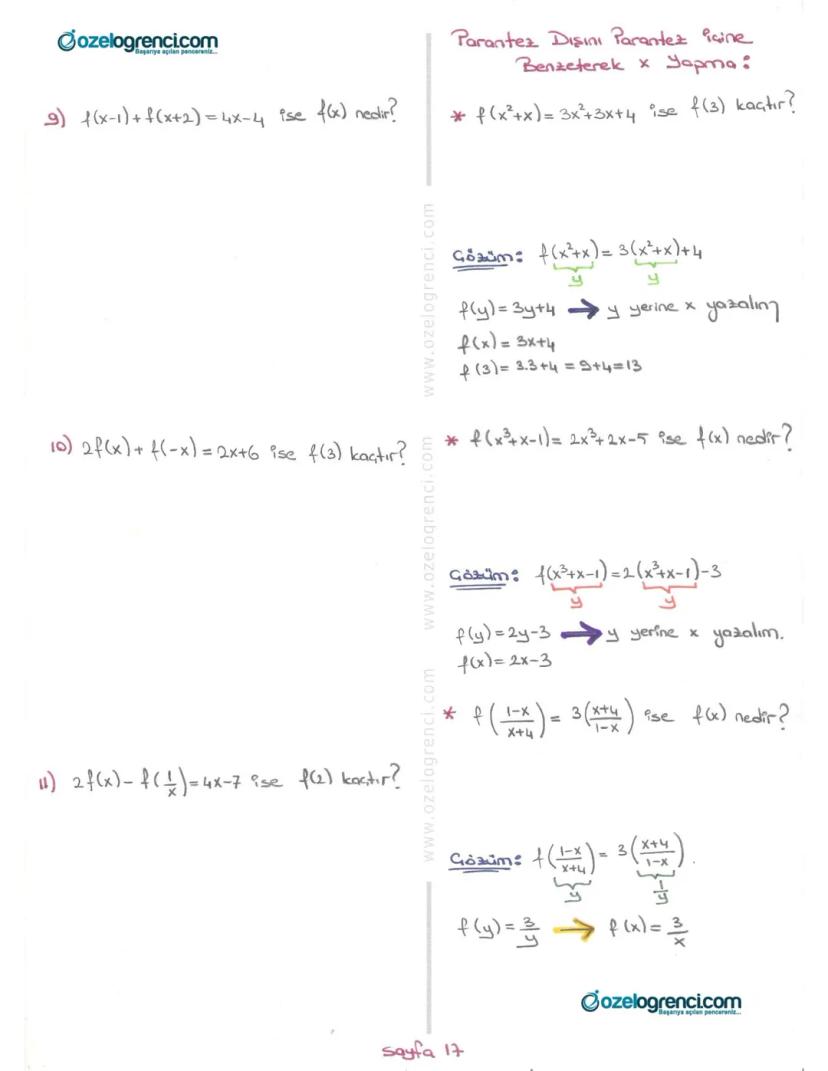 ozelogrenci.com
Başarıya açılan pencereniz...
9) f(x-1)+f(x+2)=4x-4 ise f(x) nedir?
10) 2f(x)+f(-x)=2x+6 ise f(3) kaçtır?
11) 2f(x)-f(1/x)=4x-7 ise f(2) kaçtır?
www.ozelogrenci.com
www.ozelogrenci.com
www.ozelogrenci.com
Parantez Dışını Parantez içine
Benzeterek x Yapma:
* f(x²+x)=3x²+3x+4 ise f(3) kaçtır?
Çözüm: f(x²+x)=3(x²+x)+4
y y
f(y)=3y+4 → y yerine x yazalım
f(x)=3x+4
f(3)=3.3+4=9+4=13
* f(x³+x-1)=2x³+2x-5 ise f(x) nedir?
Çözüm: f(x³+x-1)=2(x³+x-1)-3
y y
f(y)=2y-3 → y yerine x yazalım.
f(x)=2x-3
* f((1-x)/(x+4))=3((x+4)/(1-x)) ise f(x) nedir?
Çözüm: f((1-x)/(x+4))=3((x+4)/(1-x)).
y 1/y
f(y)=3/y → f(x)=3/x
ozelogrenci.com
Başarıya açılan pencereniz...
sayfa 17